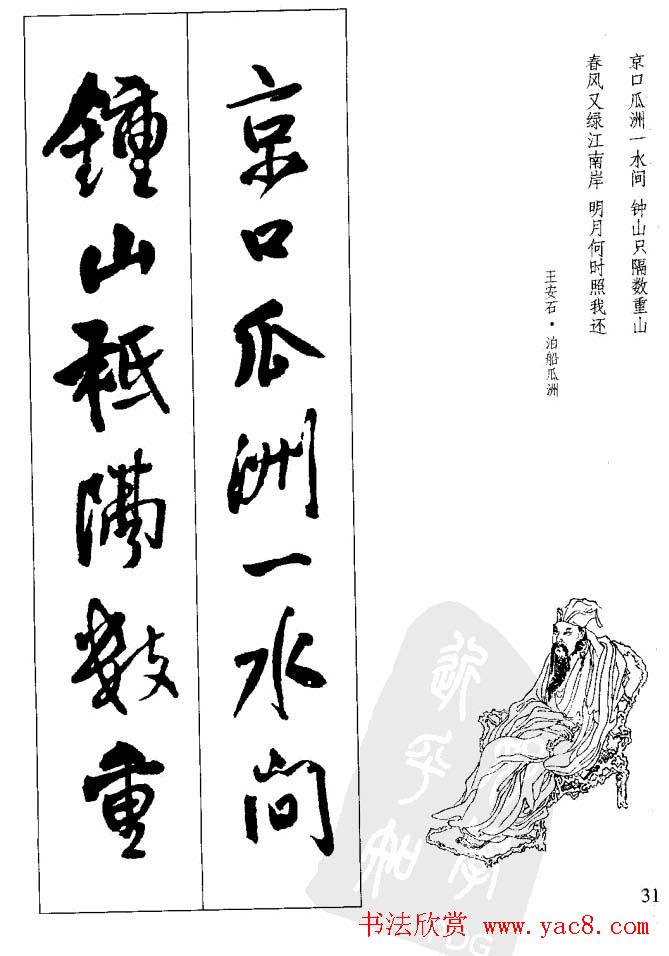 京口瓜洲一水间 钟山只隔数重山
春风又绿江南岸 明月何时照我还
王安石·泊船瓜洲
京口瓜洲一水间
鍾山秖隔数重
31
书法欣赏 www.yac8.com